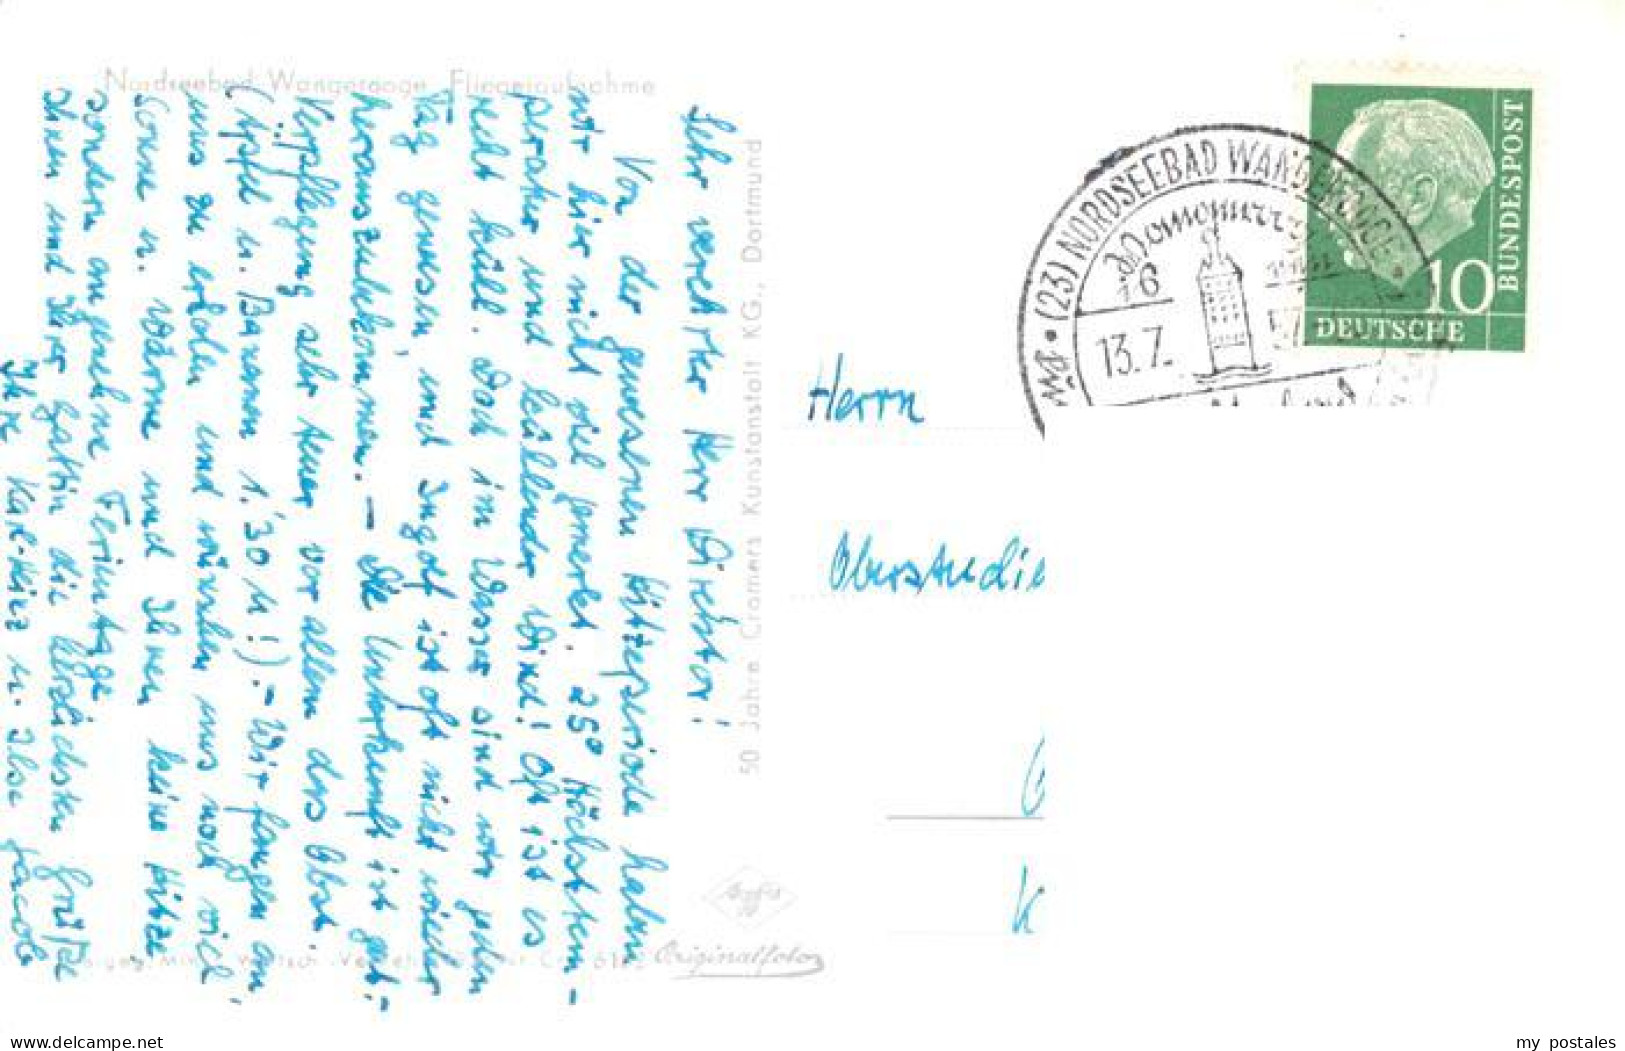 Nordseebad Wangerooge Fliegeraufnahme
Sehr verehrter Herr Direktor!
Von der gewesenen Hitzeperiode haben
wir hier nicht viel gemerkt. 25° Höchsttem-
peratur und kühlender Wind! Oft ist es
recht kühl. Doch im Wasser sind wir jeden
Tag gewesen, und Ingolf ist oft nicht wieder
herauszubekommen. – Die Unterkunft ist gut;
Verpflegung sehr teuer vor allem das Obst.
(Äpfel u. Bananen 1.30 M!). – Wir fangen an
uns zu erholen und wünschen uns noch viel
Sonne u. Wärme und Ihnen keine Hitze
sondern angenehme Ferientage
Ihnen und Ihrer Gattin die herzlichsten Grüße
Ihre Karl-Heinz u. Ilse Jacob
50 Jahre Cramers Kunstanstalt KG., Dortmund
Originalfoto
(23) NORDSEEBAD WANGEROOGE
13.7.
10
DEUTSCHE
BUNDESPOST
Herrn
Oberstudie
G
K
my postales